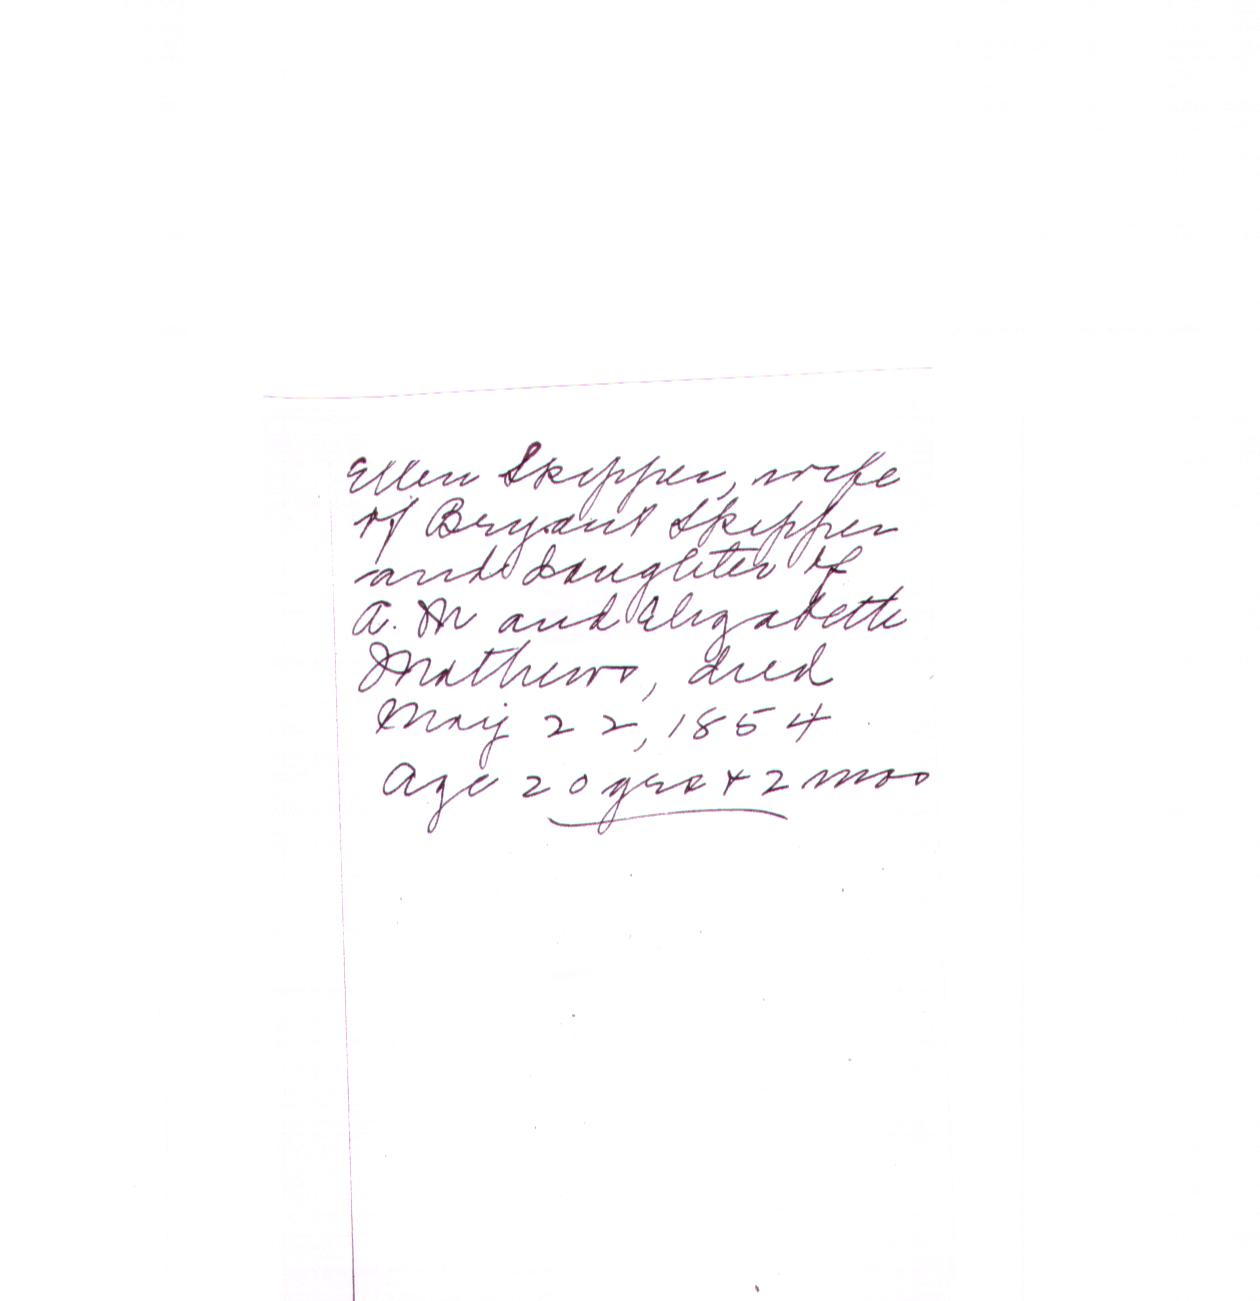 Ellen Skipper, wife
of Bryant Skipper
and daughter of
A. M and Elizabeth
Mathews, died
May 22, 1854
Age 20 yrs + 2 mos